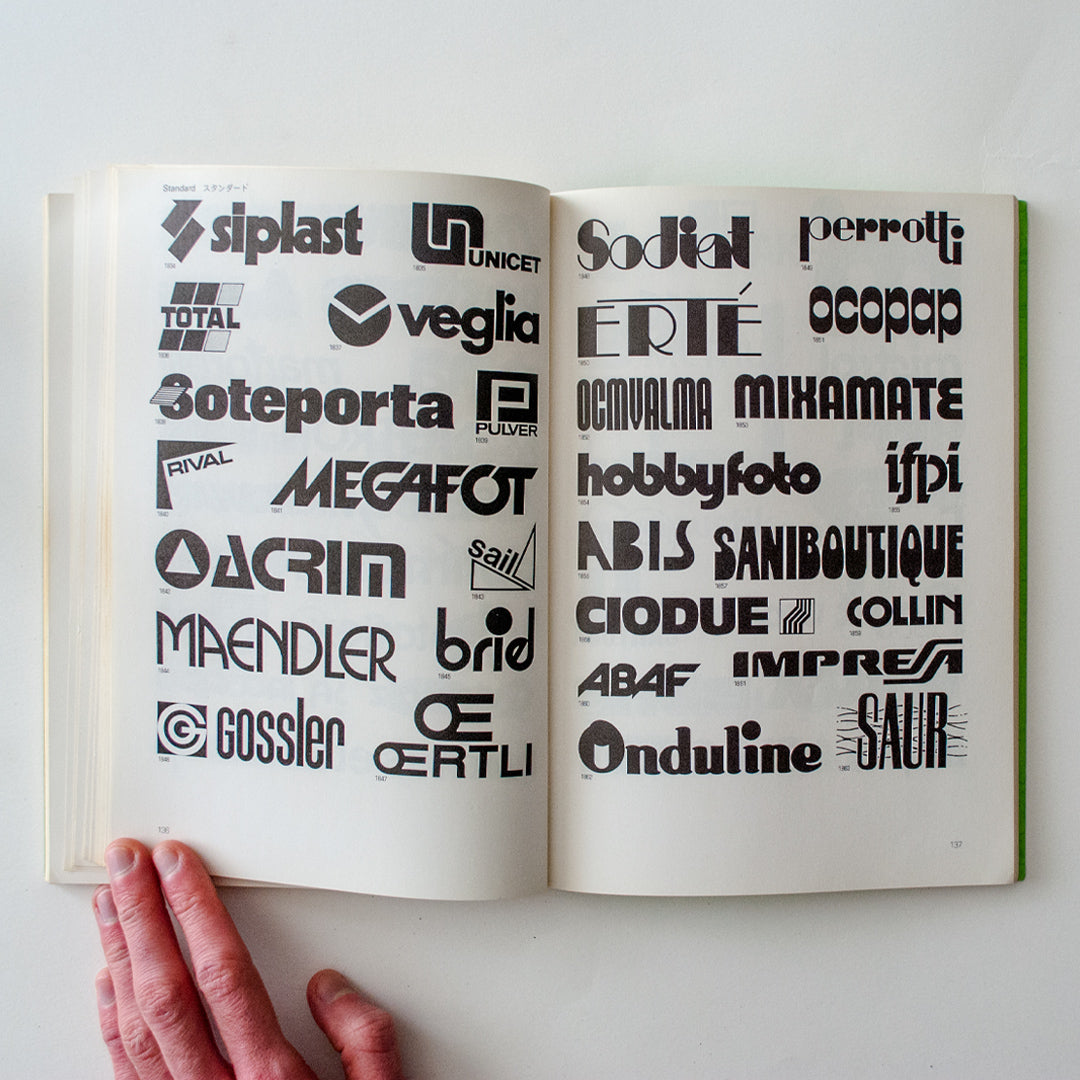 Standard スタンダード
siplast
1834
UN UNICET
1835
TOTAL
1836
veglia
1837
Soteporta
1838
P PULVER
1839
RIVAL
1840
MEGAFOT
1841
ACRIM
1842
sail
1843
MAENDLER
1844
brid
1845
G GOSSler
1846
Œ
ŒRTLI
1847
136
Sodiat
1848
perrotti
1849
ERTÉ
1850
ocopap
1851
OCMVALMA
1852
MIXAMATE
1853
hobbyfoto
1854
ifpi
1855
ABIS
1856
SANIBOUTIQUE
1857
CIODUE
1858
COLLIN
1859
ABAF
1860
IMPRESA
1861
Onduline
1862
SAUR
1863
137